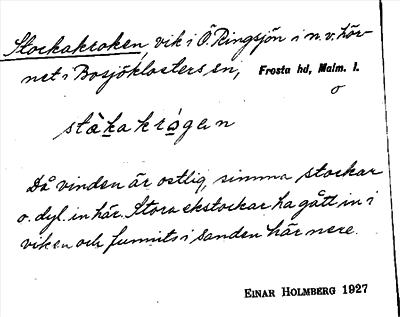 Stockakroken, vik i Ö. Ringsjön i n.v. hör-
net i Bosjöklosters sn, Frosta hd, Malm. l.
o
stàkakrågen
Då vinden är ostlig, simma stockar
o. dyl. in här. Stora ekstockar ha gått in i
viken och funnits i sanden här nere.
EINAR HOLMBERG 1927